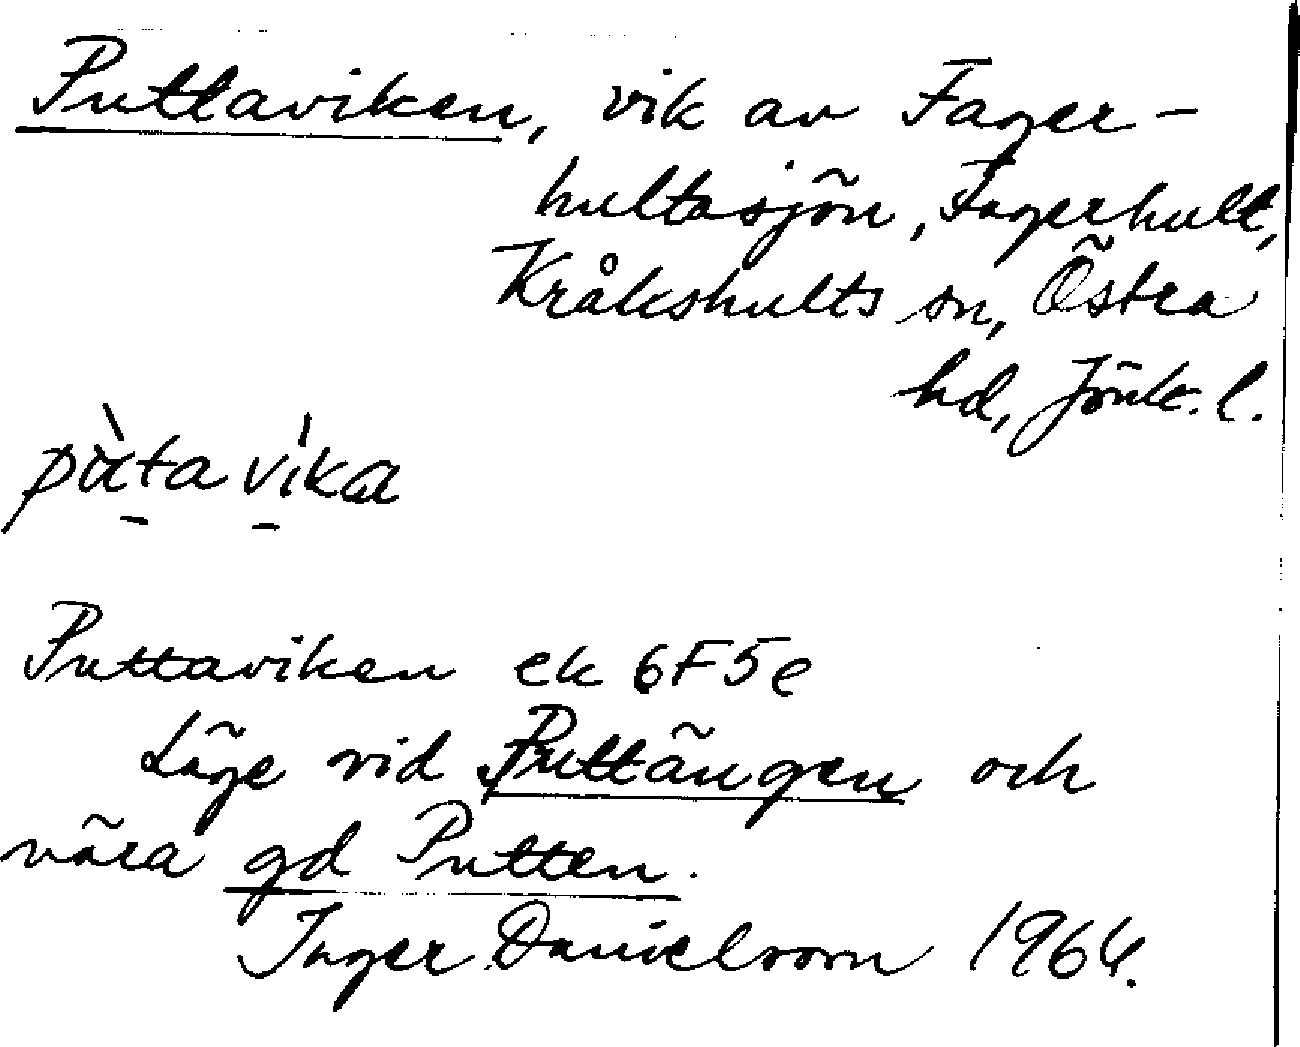 Puttaviken, vik av Fager-
hultasjön, Fagerhult,
Kråkshults sn, Östra
hd, Jönk. l.
pùta víka
Puttaviken ek 6F5e
Läge vid Puttängen och
nära gd Putten.
Inger Danielsson 1964.